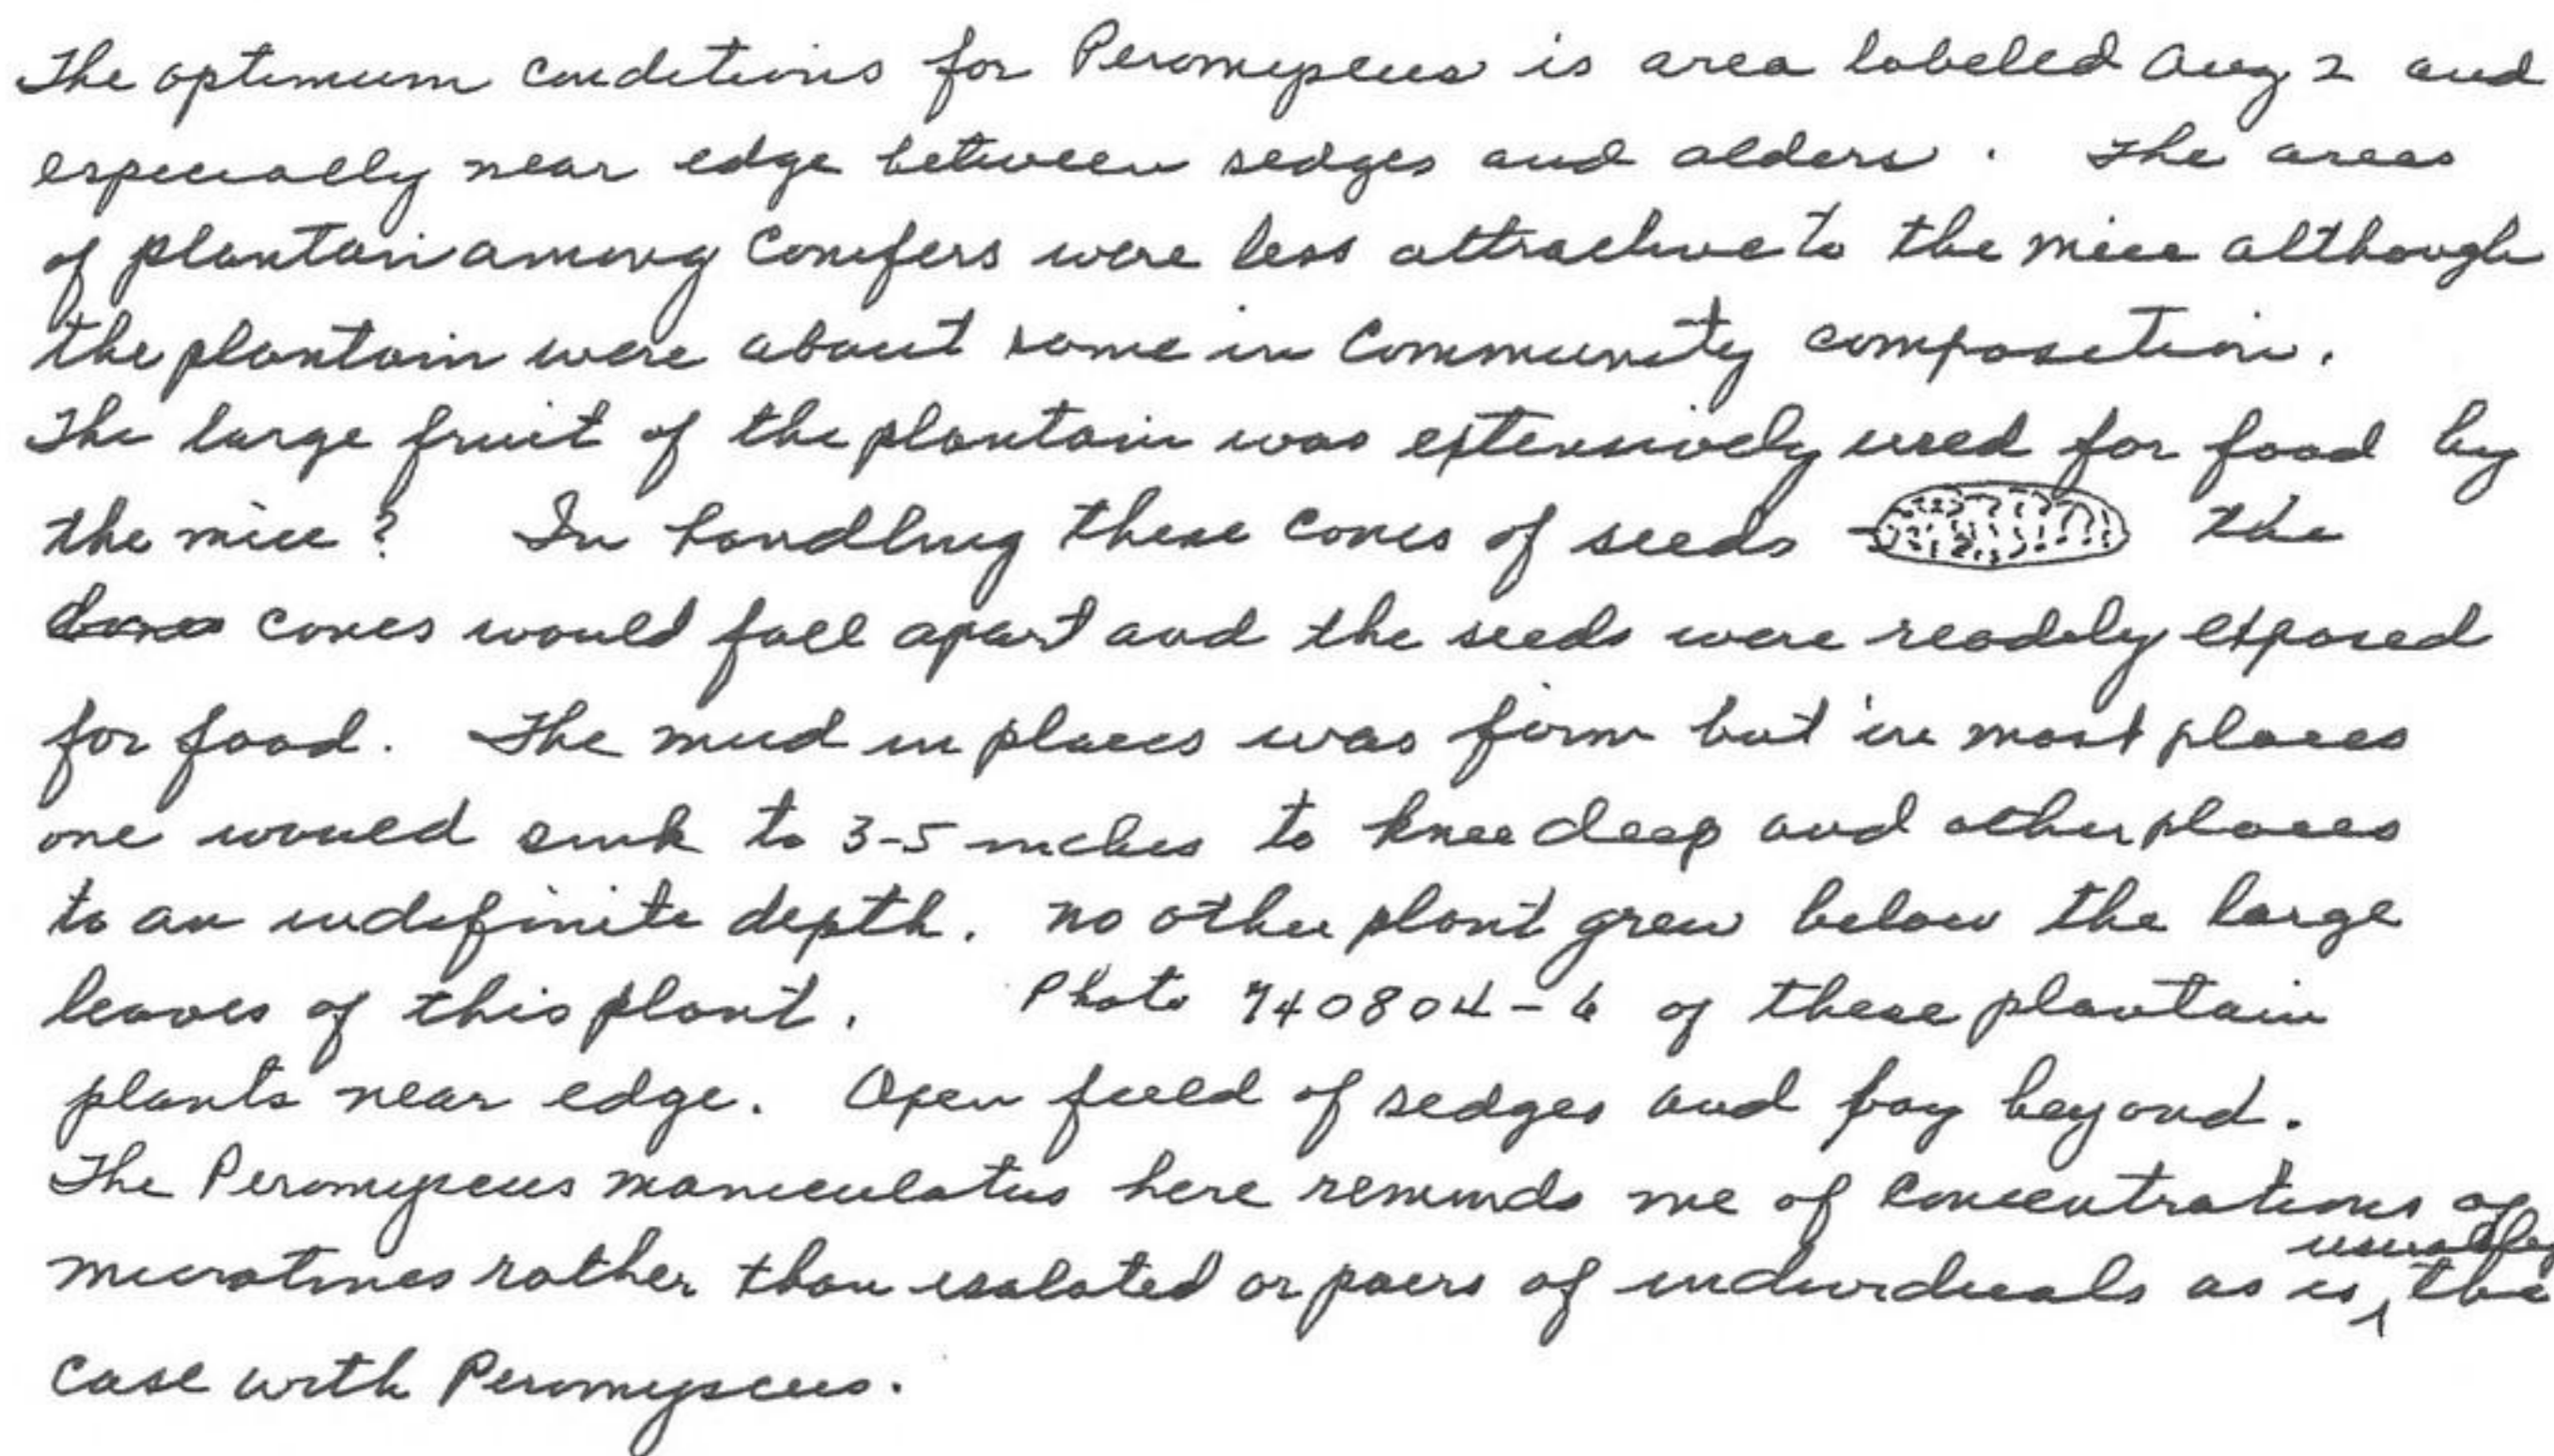 The optimum conditions for Peromyscus is area labeled Aug 2 and
especially near edge between sedges and alders. The areas
of plantain among Conifers were less attractive to the mice although
the plantain were about same in Community composition.
The large fruit of the plantain was extensively used for food by
the mice? In handling these cones of seeds the
cones would fall apart and the seeds were readily exposed
for food. The mud in places was firm but in most places
one would sink to 3-5 inches to knee deep and other places
to an indefinite depth. No other plant grew below the large
leaves of this plant. Photo 740804-6 of these plantain
plants near edge. Open field of sedges and bay beyond.
The Peromyscus maniculatus here reminds me of concentrations of
microtines rather than isolated or pairs of individuals as is usually the
case with Peromyscus.